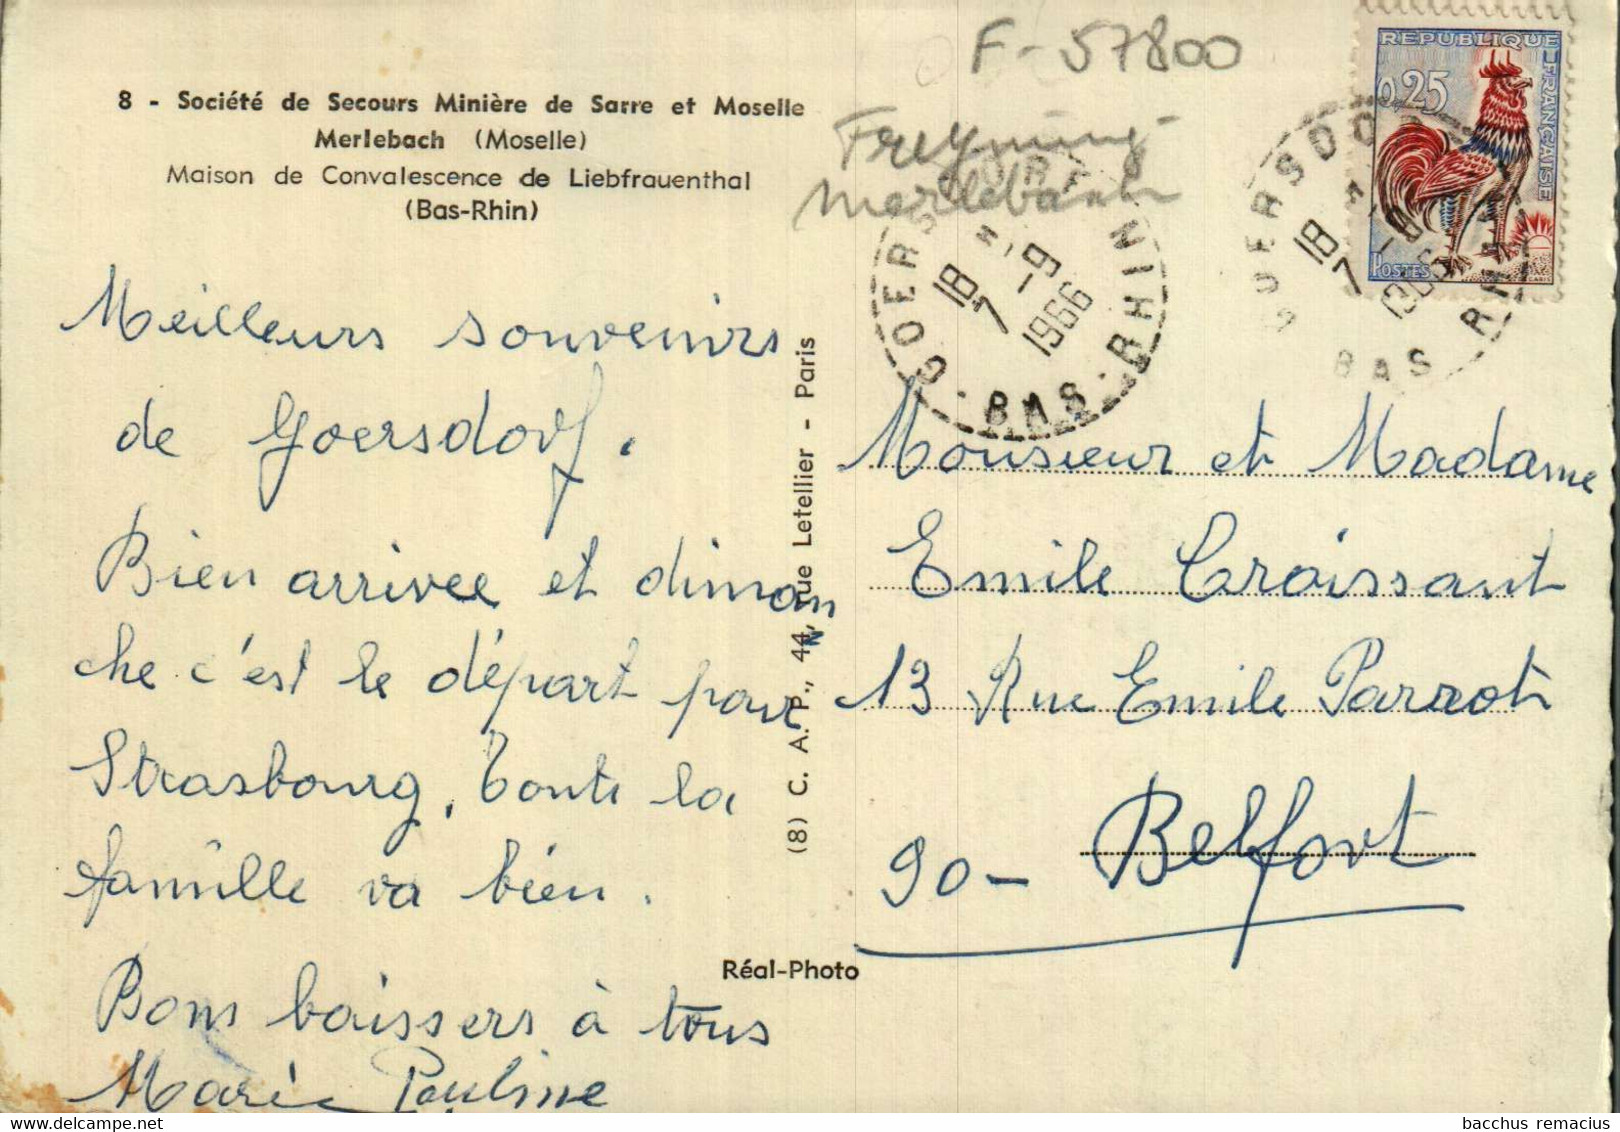 F-57800
Freyming-
Merlebach
8 - Société de Secours Minière de Sarre et Moselle
Merlebach (Moselle)
Maison de Convalescence de Liebfrauenthal
(Bas-Rhin)
REPUBLIQUE
FRANÇAISE
0,25
POSTES
GOERSDORF
18 H
7 -9
1966
BAS-RHIN
GOERSDORF
18 H
7 -9
1966
BAS RHIN
Meilleurs souvenirs
de Goersdorf.
Bien arrivee et diman
che c'est le départ pour
Strasbourg. Toute la
famille va bien.
Bons baissers à tous
Marie Pauline
(8) C. A. P., 44, rue Letellier - Paris
Réal-Photo
Monsieur et Madame
Emile Croissant
13 Rue Emile Parrot
90- Belfort
bacchus remacius